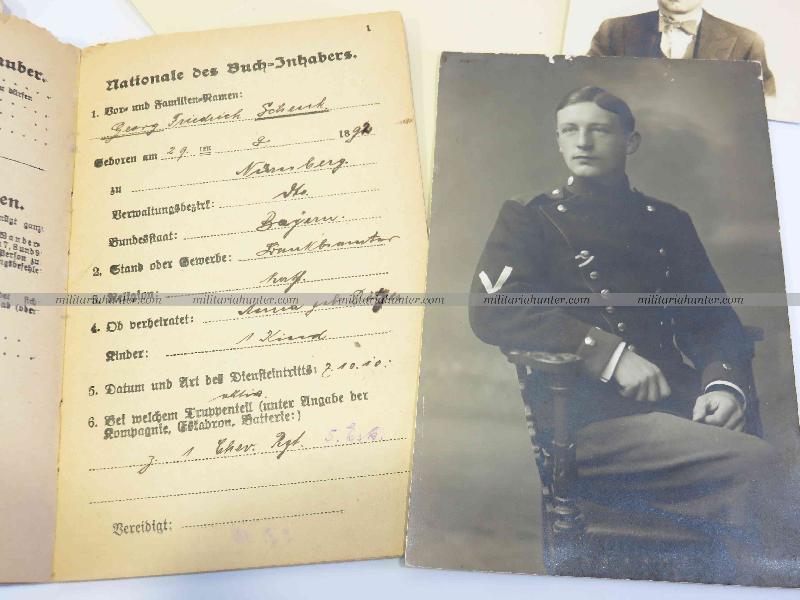 auber.
en.
1
Nationale des Buch=Inhabers.
1. Vor= und Familien=Namen:
Georg Friedrich Schenk
Geboren am 29 ten 8. 1892
zu Nürnberg.
Verwaltungsbezirk: dto.
Bundesstaat: Bayern.
2. Stand oder Gewerbe:
3. Religion: kath
4. Ob verheiratet: Anna geb.
Kinder: 1 Kind
5. Datum und Art des Diensteintritts: 7.10.10:
aktiv.
6. Bei welchem Truppenteil (unter Angabe der
Kompagnie, Eskadron, Batterie:)
z. 1 Chev. Rgt 5. Esk.
Vereidigt:
militariahunter.com militariahunter.com militariahunter.com militariahunter.com militariahunter.com